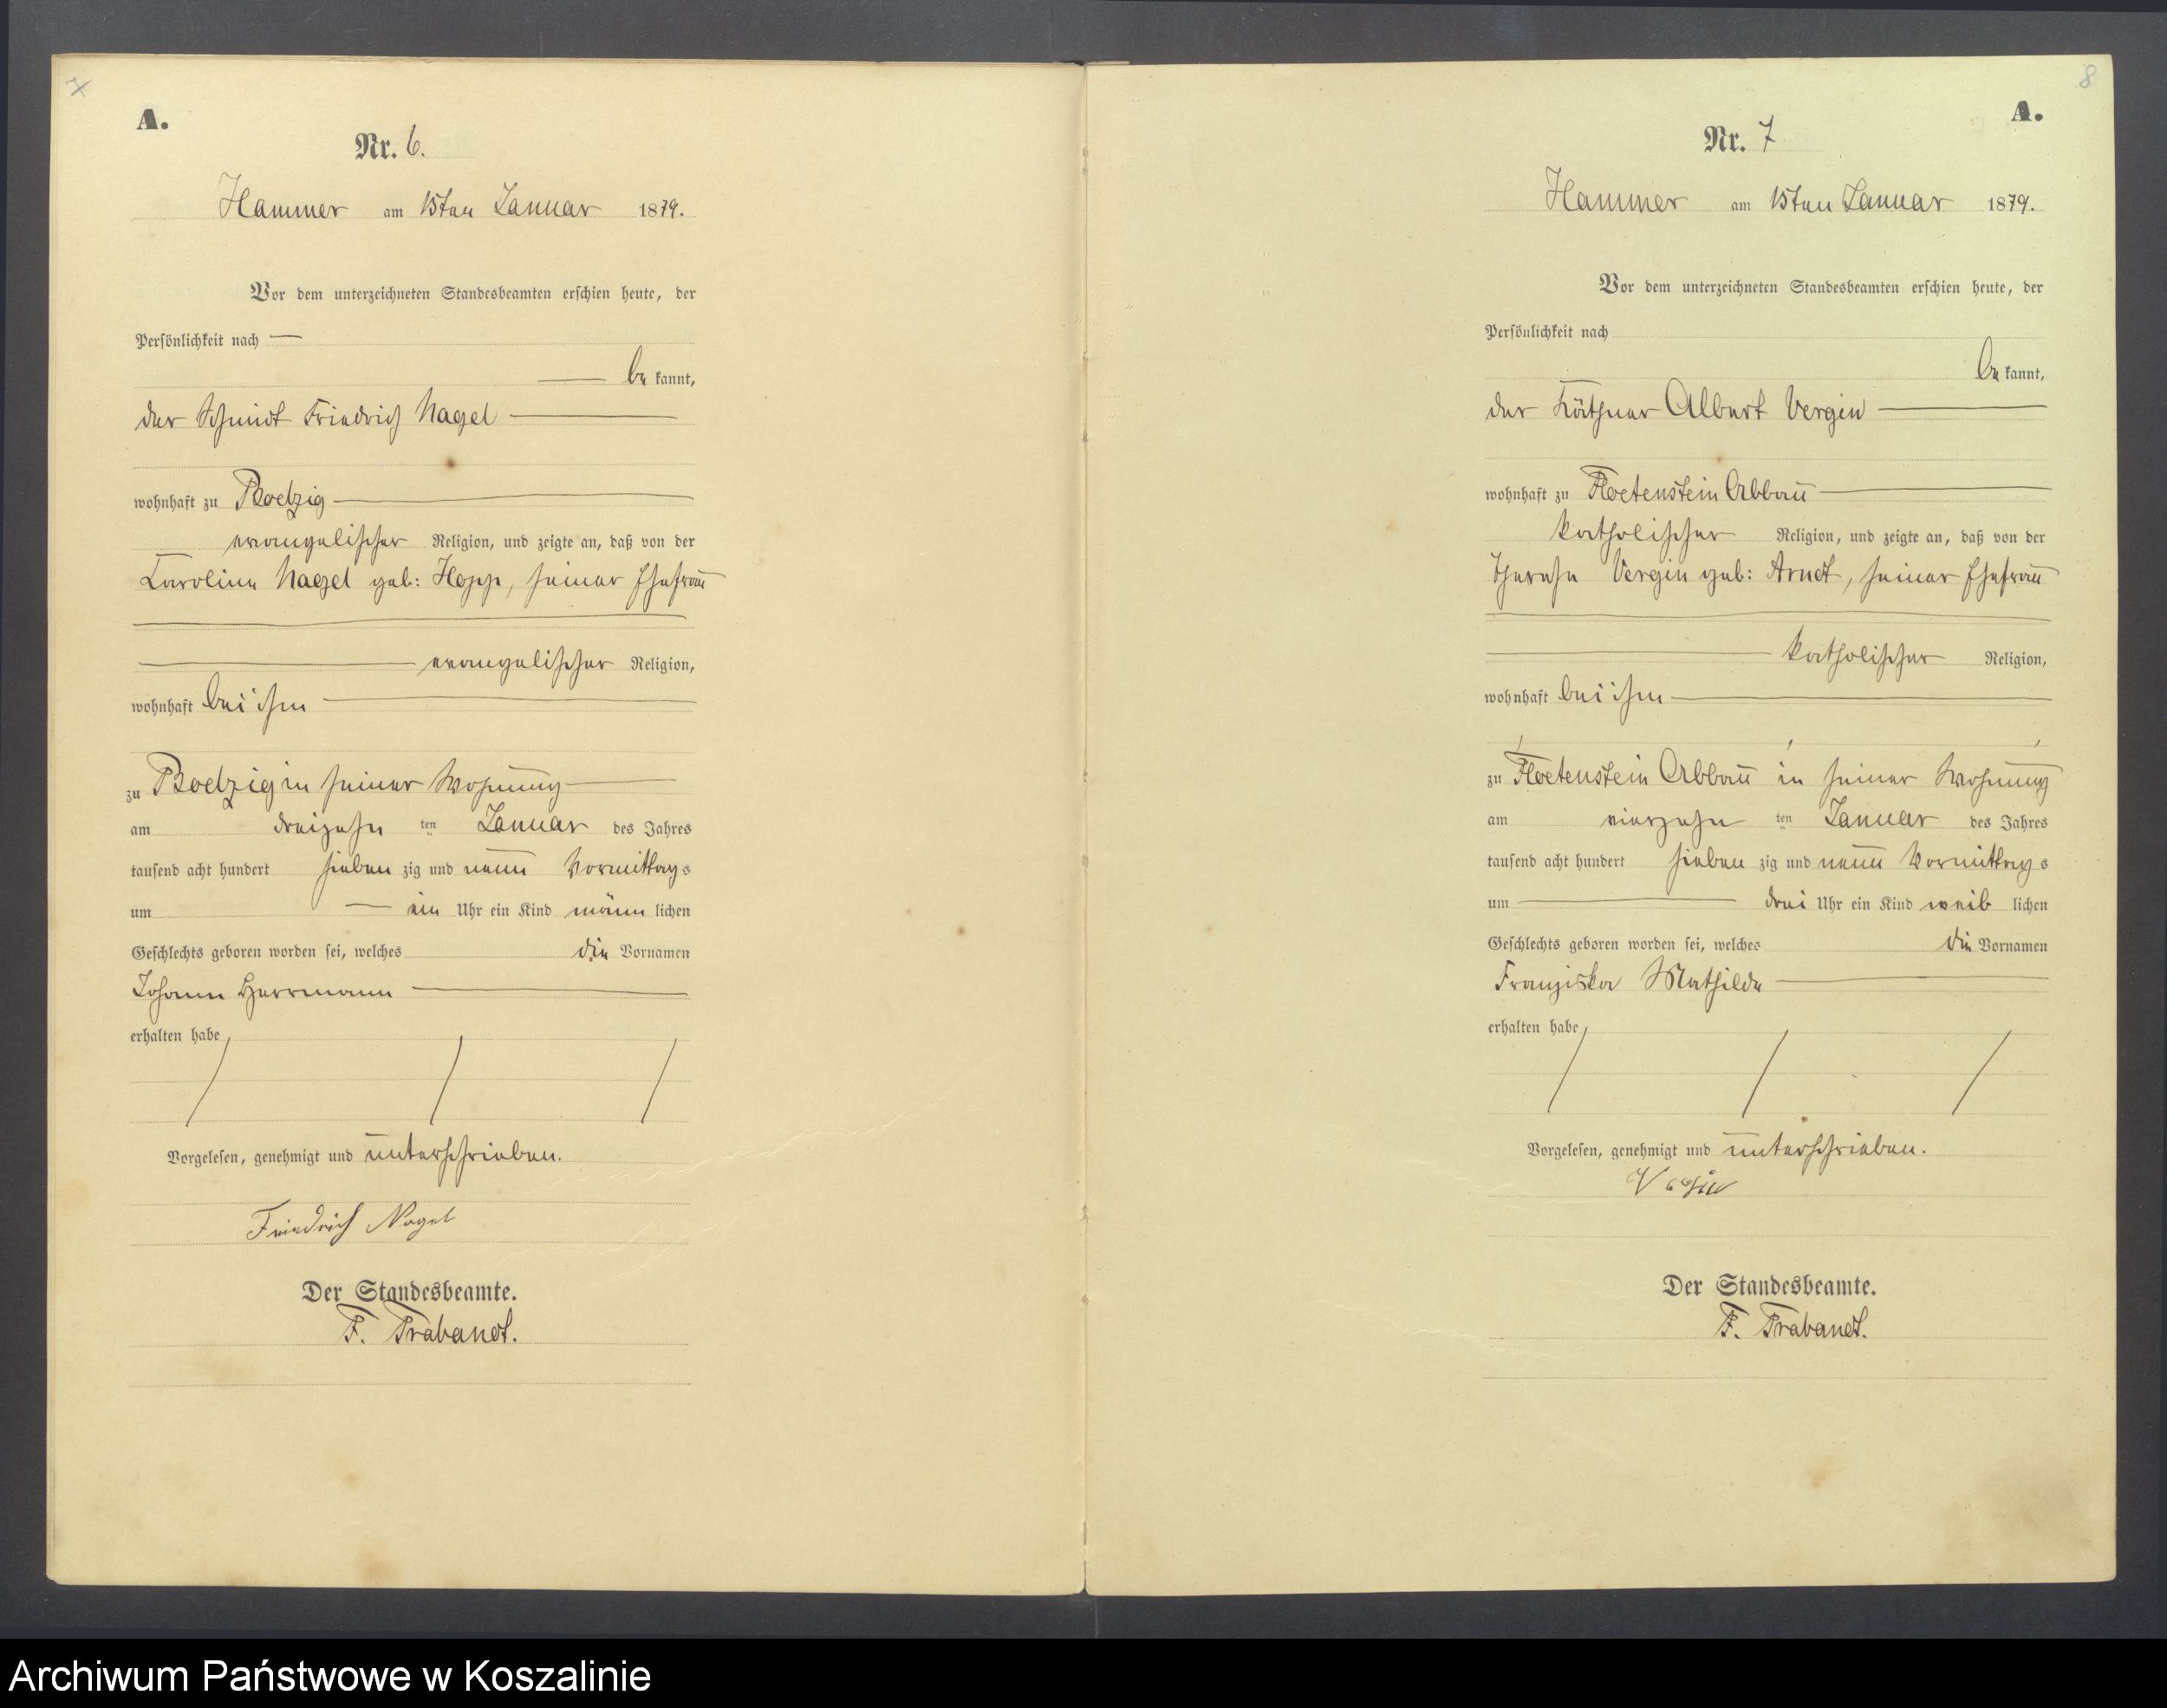 A.
Nr. 6.
Hammer am 15ten Januar 1879.
Vor dem unterzeichneten Standesbeamten erschien heute, der
Persönlichkeit nach —
be kannt,
der Schmidt Friedrich Nagel
wohnhaft zu Ploetzig
evangelischer Religion, und zeigte an, daß von der
Caroline Nagel geb: Hopp, seiner Ehefrau
evangelischer Religion,
wohnhaft bei ihm
zu Ploetzig in seiner Wohnung
am dreizehn ten Januar des Jahres
tausend acht hundert sieben zig und neun Vormittags
um — ein Uhr ein Kind männ lichen
Geschlechts geboren worden sei, welches die Vornamen
Johann Herrmann
erhalten habe
Vorgelesen, genehmigt und unterschrieben.
Friedrich Nagel
Der Standesbeamte.
F. Trabandt.
8
A.
Nr. 7
Hammer am 15ten Januar 1879.
Vor dem unterzeichneten Standesbeamten erschien heute, der
Persönlichkeit nach
be kannt,
der Käthner Albert Vergin
wohnhaft zu Floetenstein Abbau
katholischer Religion, und zeigte an, daß von der
Therese Vergin geb: Arndt, seiner Ehefrau
katholischer Religion,
wohnhaft bei ihm
zu Floetenstein Abbau in seiner Wohnung
am vierzehn ten Januar des Jahres
tausend acht hundert sieben zig und neun Vormittags
um — drei Uhr ein Kind weib lichen
Geschlechts geboren worden sei, welches die Vornamen
Franziska Mathilde
erhalten habe
Vorgelesen, genehmigt und unterschrieben.
Vergin
Der Standesbeamte.
F. Trabandt.
Archiwum Państwowe w Koszalinie